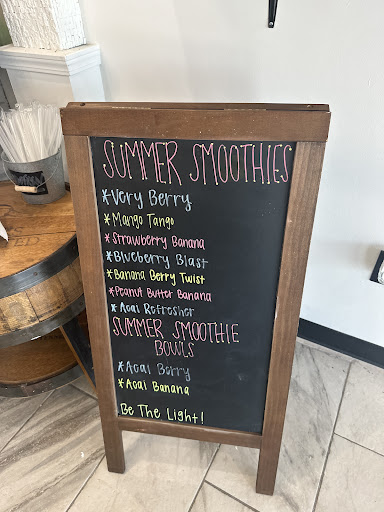 SUMMER SMOOTHIES
*Very Berry
*Mango Tango
*Strawberry Banana
*Blueberry Blast
*Banana Berry Twist
*Peanut Butter Banana
*Acai Refresher
SUMMER SMOOTHIE
BOWLS
*Acai Berry
*Acai Banana
Be The Light!